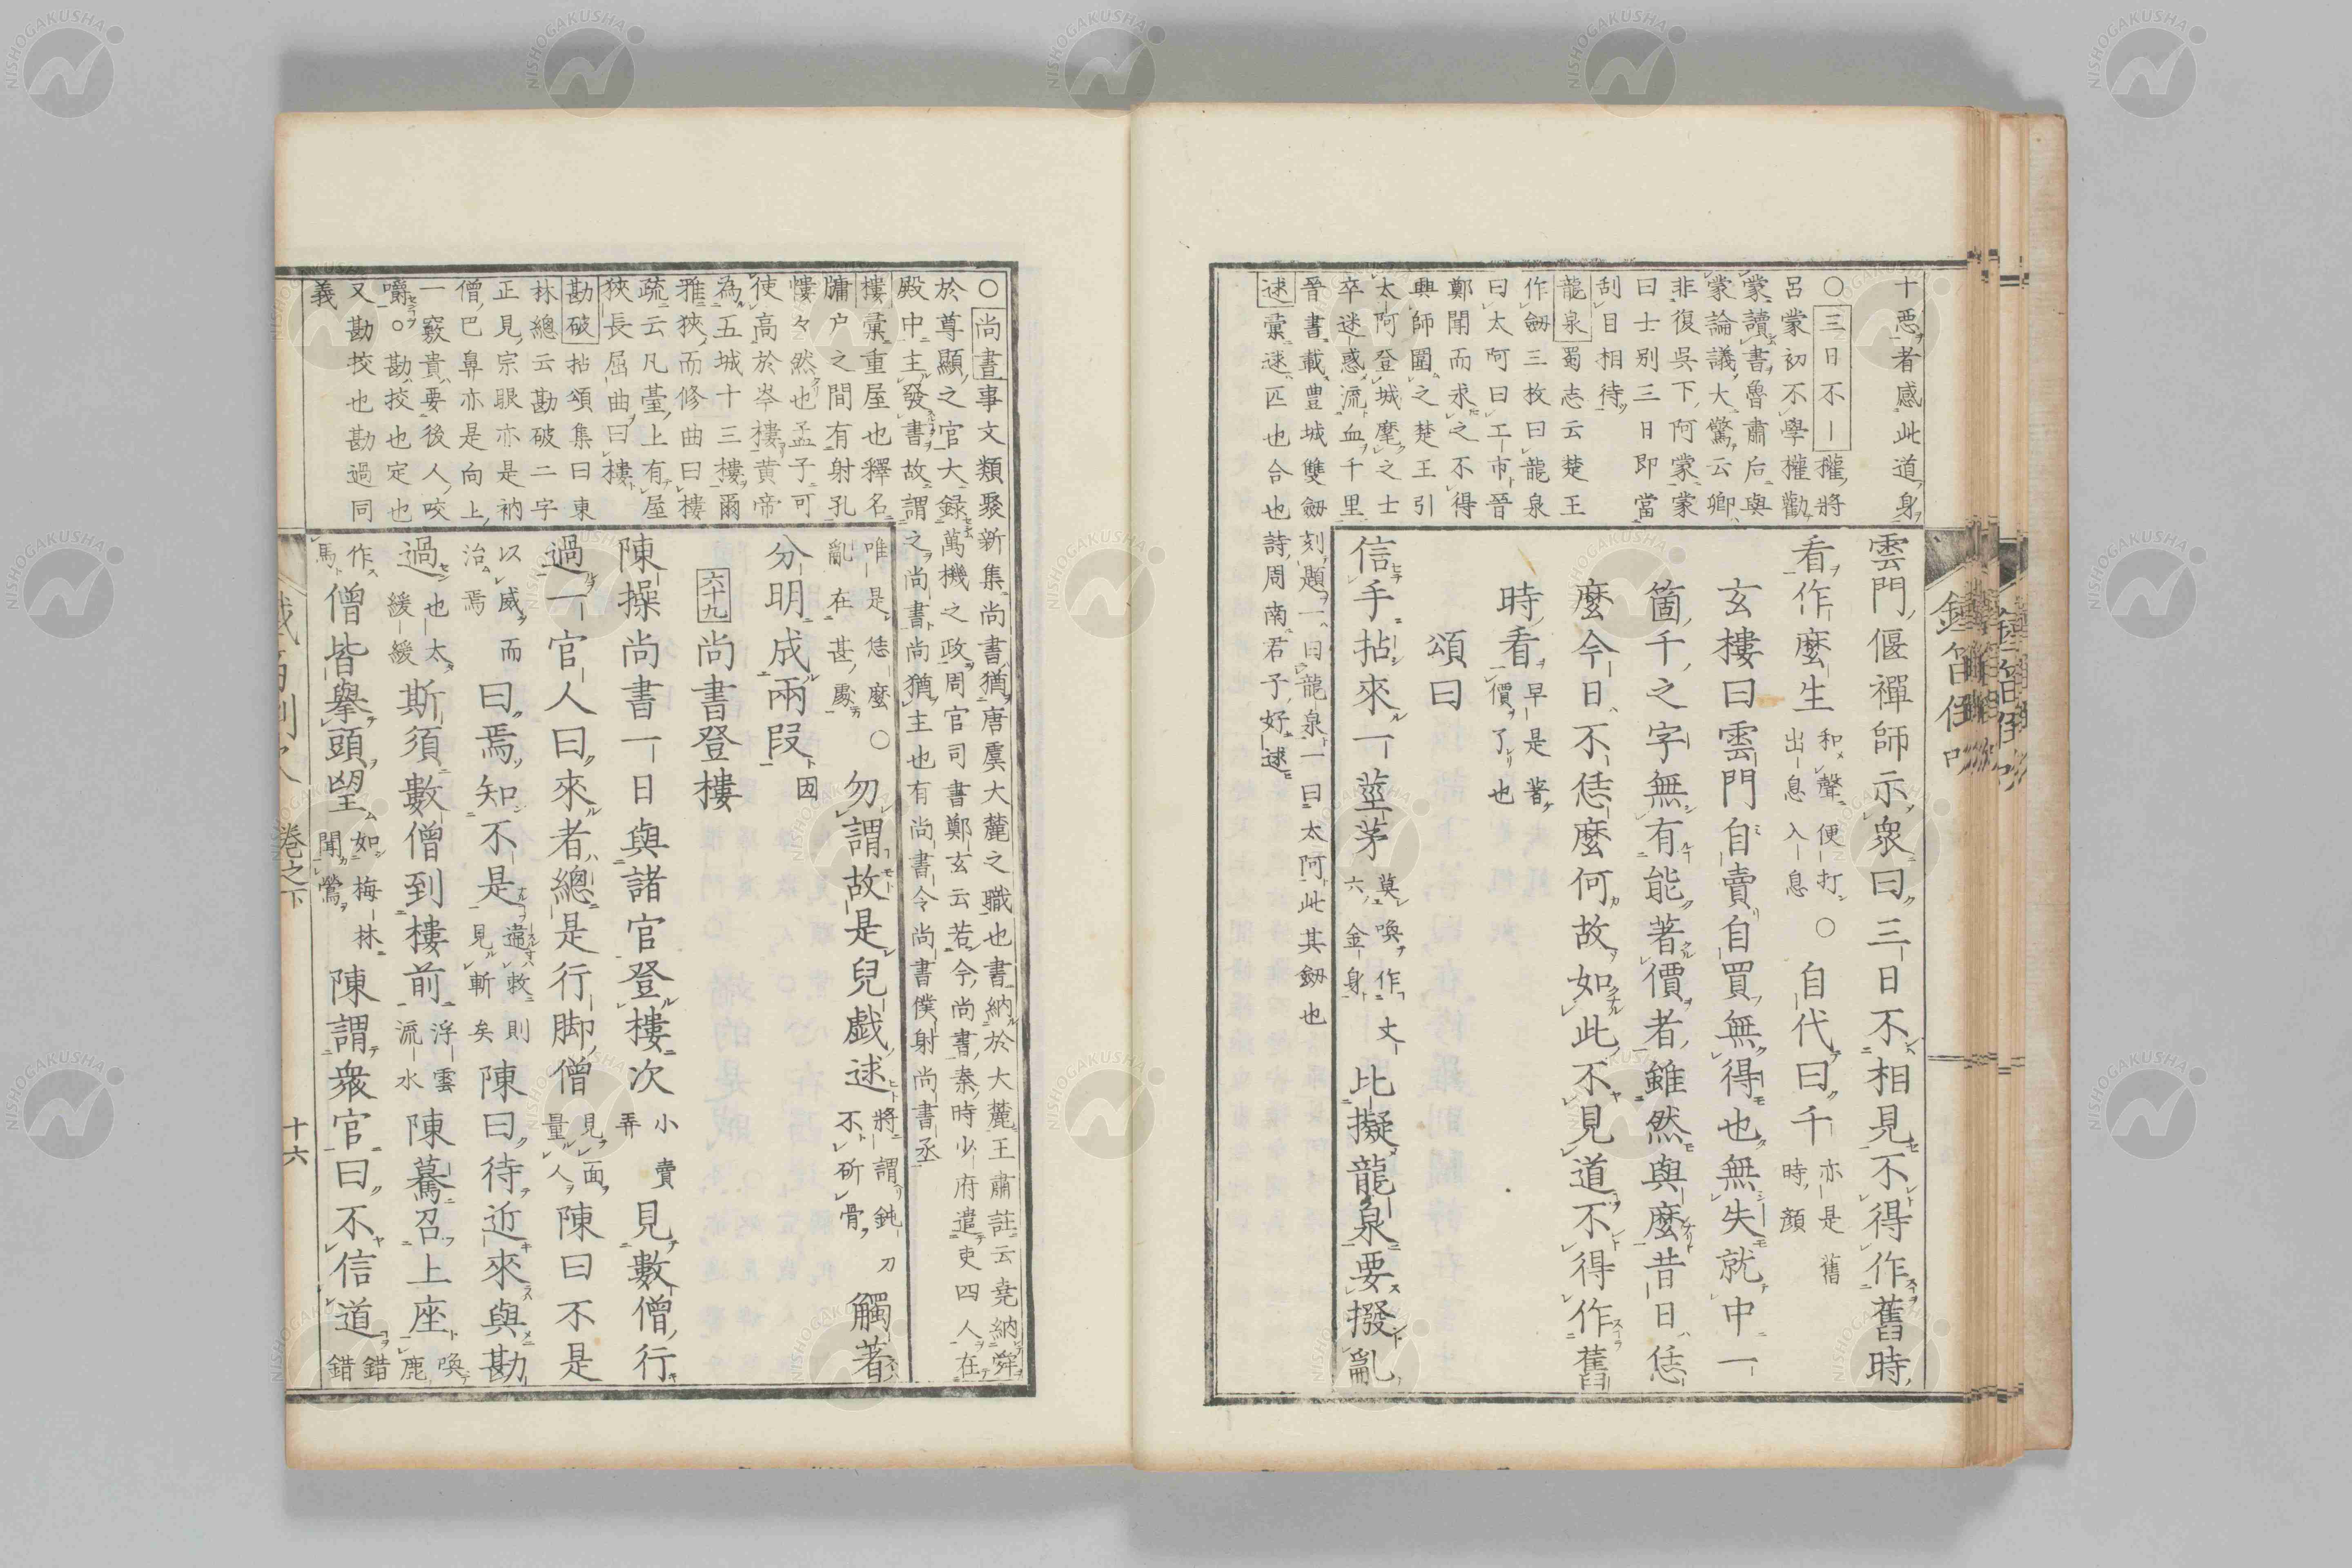 十惡者感此道身
○三日不｜權將
呂蒙初不學權勸
蒙讀書魯肅后與
蒙論議大驚云卿
非復吳下阿蒙蒙
曰士別三日即當
刮目相待
龍泉蜀志云楚王
作劔三枚曰龍泉
曰太阿曰工市晉
鄭聞而求之不得
興師圍之楚王引
太阿登城麾之士
卒迷惑流血千里
晉書載豊城雙劔刻題一曰龍泉一曰太阿此其劔也
逑彙逑匹也合也詩周南君子好逑
雲門偃禪師示衆曰三日不相見不得作舊時
看作麼生和聲便打出息入息○自代曰千亦是舊時顏
玄樓曰雲門自賣自買無得也無失就中一
箇千之字無有能著價者雖然與麼昔日恁
麼今日不恁麼何故如此不見道不得作舊
時看早是著價了也
頌曰
信手拈來一莖茅莫喚作丈六金身比擬龍泉要撥亂
○尚書事文類聚新集尚書猶唐虞大麓之職也書納於大麓王肅註云堯納舜
於尊顯之官大録萬機之政周官司書鄭玄云若今尚書秦時少府遣吏四人在
殿中主發書故謂之尚書尚猶主也有尚書令尚書僕射尚書丞
樓彙重屋也釋名
牗户之間有射孔
慺々然也孟子可
使高於岑樓黄帝
為五城十三樓爾
雅狹而修曲曰樓
疏云凡臺上有屋
狹長屈曲曰樓
勘破拈頌集曰東
林總云勘破二字
正見宗眼亦是衲
僧巴鼻亦是向上
一竅貴要後人咬
嚼○勘挍也定也
又勘挍也勘過同
義
唯是恁麼亂在甚處○勿謂故是兒戯逑將謂鈍刀不斫骨觸著
分明成兩段因
六十九尚書登樓
陳操尚書一日與諸官登樓次小賣弄見數僧行
過一官人曰來者總是行脚僧見面量人陳曰不是
以威而治焉曰焉知不是違敕則見斬矣陳曰待近來與勘
過也太緩緩斯須數僧到樓前浮雲流水陳驀召上座喚鹿
作馬僧皆擧頭望如梅林聞鶯陳謂衆官曰不信道錯錯
卷之下
十六